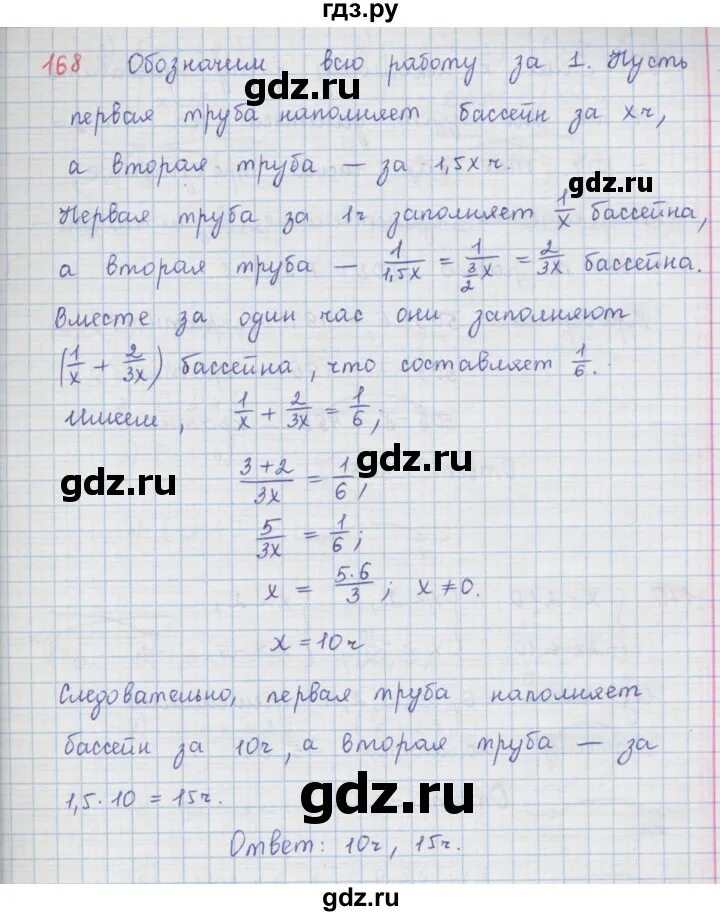 гдз.ру
168 Обозначим всю работу за 1. Пусть
gdz.ru
первая труба наполняет бассейн за xч,
а вторая труба — за 1,5xч.
gdz.ru
Первая труба за 1ч заполняет 1/x бассейна,
а вторая труба — 1/1,5x = 1/(3/2 x) = 2/3x бассейна.
Вместе за один час они заполняют
(1/x + 2/3x) бассейна, что составляет 1/6.
Имеем, 1/x + 2/3x = 1/6;
gdz.ru
gdz.ru
3+2/3x = 1/6;
5/3x = 1/6;
x = 5·6/3; x ≠ 0.
x = 10ч
Следовательно, первая труба наполняет
бассейн за 10ч, а вторая труба — за
1,5·10 = 15ч.
gdz.ru
Ответ: 10ч, 15ч.
gdz.ru